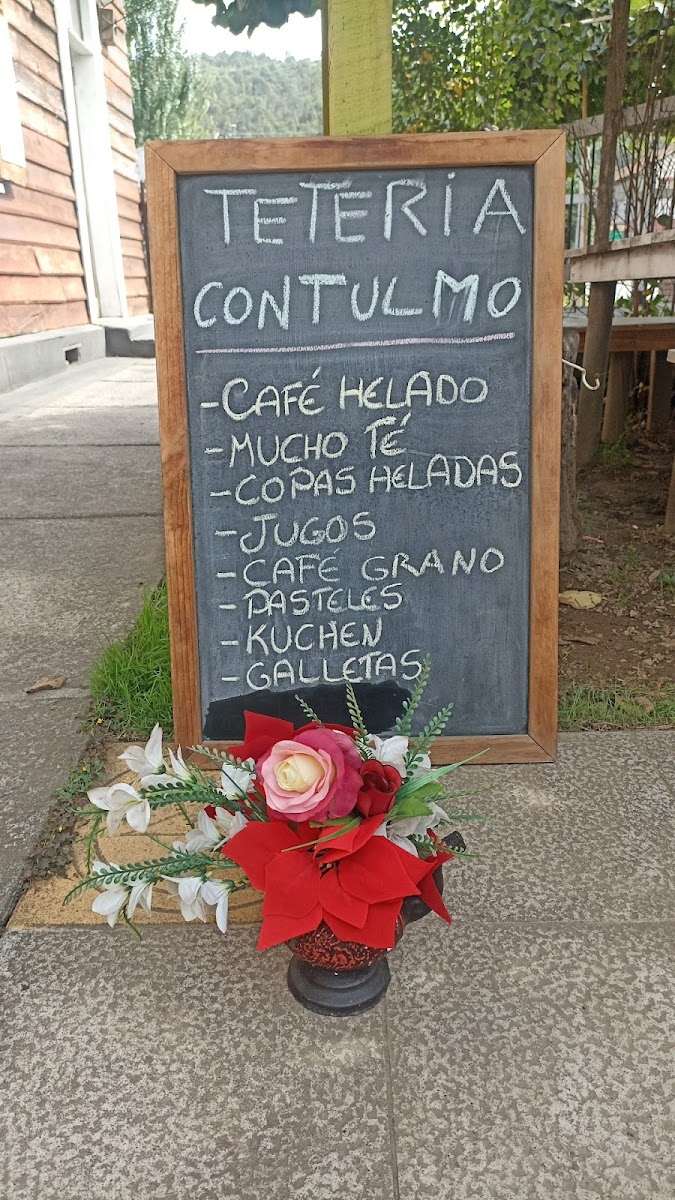 TETERiA
CONTULMO
-CAFÉ HELADO
-MUCHO TÉ
-COPAS HELADAS
-JUGOS
-CAFÉ GRANO
-PASTELES
-KUCHEN
-GALLETAS